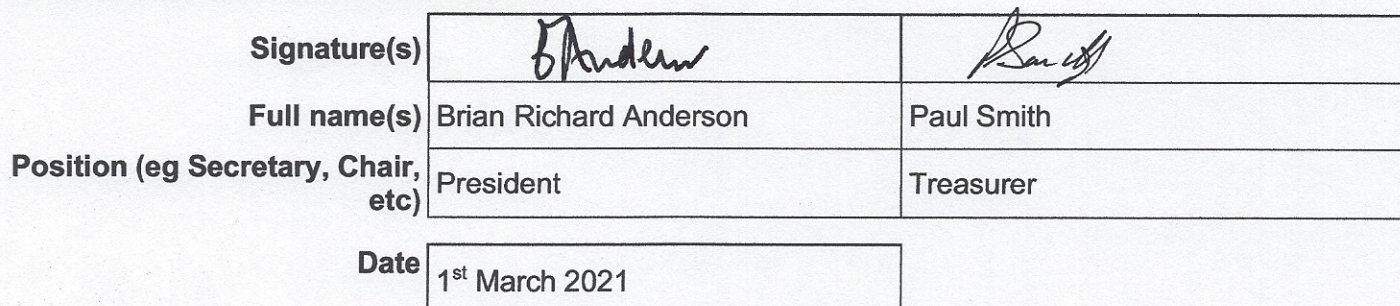 Signature(s)
Full name(s) Brian Richard Anderson Paul Smith
Position (eg Secretary, Chair,
etc) President Treasurer
Date 1st March 2021